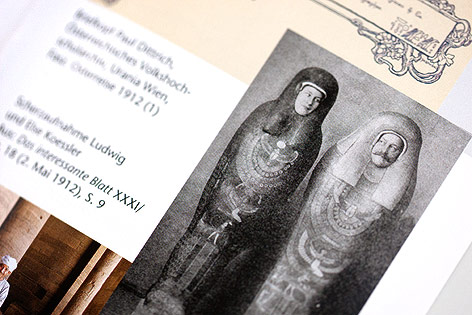 Briefkopf Paul Dittrich,
Österreichisches Volkshoch-
schularchiv, Urania Wien,
Orientreise 1912 (1)
Scherzaufnahme Ludwig
und Ilse Koessler
Das interessante Blatt XXXI/
18 (2. Mai 1912), S. 9
& Co.